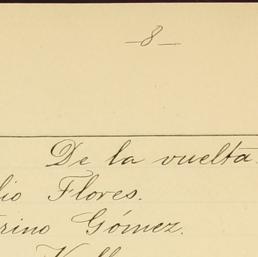 -8-
De la vuelta.
lio Flores.
rino Gómez.